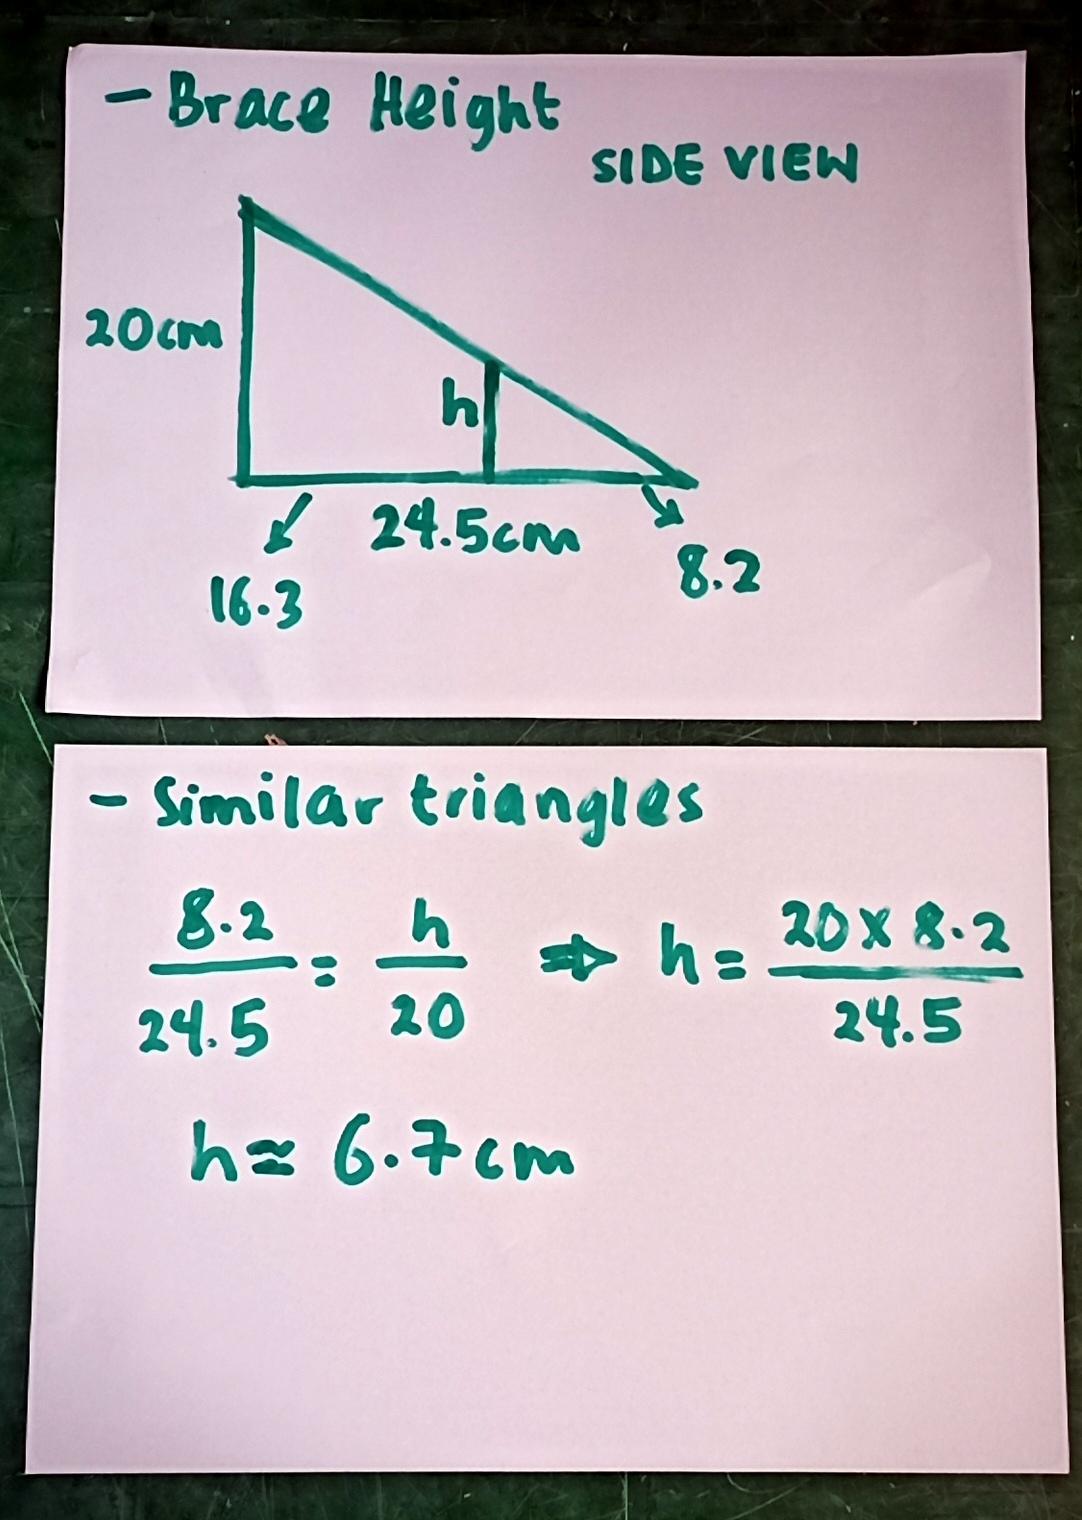 - Brace Height
SIDE VIEW
20cm
h
24.5cm
16.3
8.2
- Similar triangles
8.2/24.5 = h/20 ⇒ h = 20 x 8.2/24.5
h ≈ 6.7cm